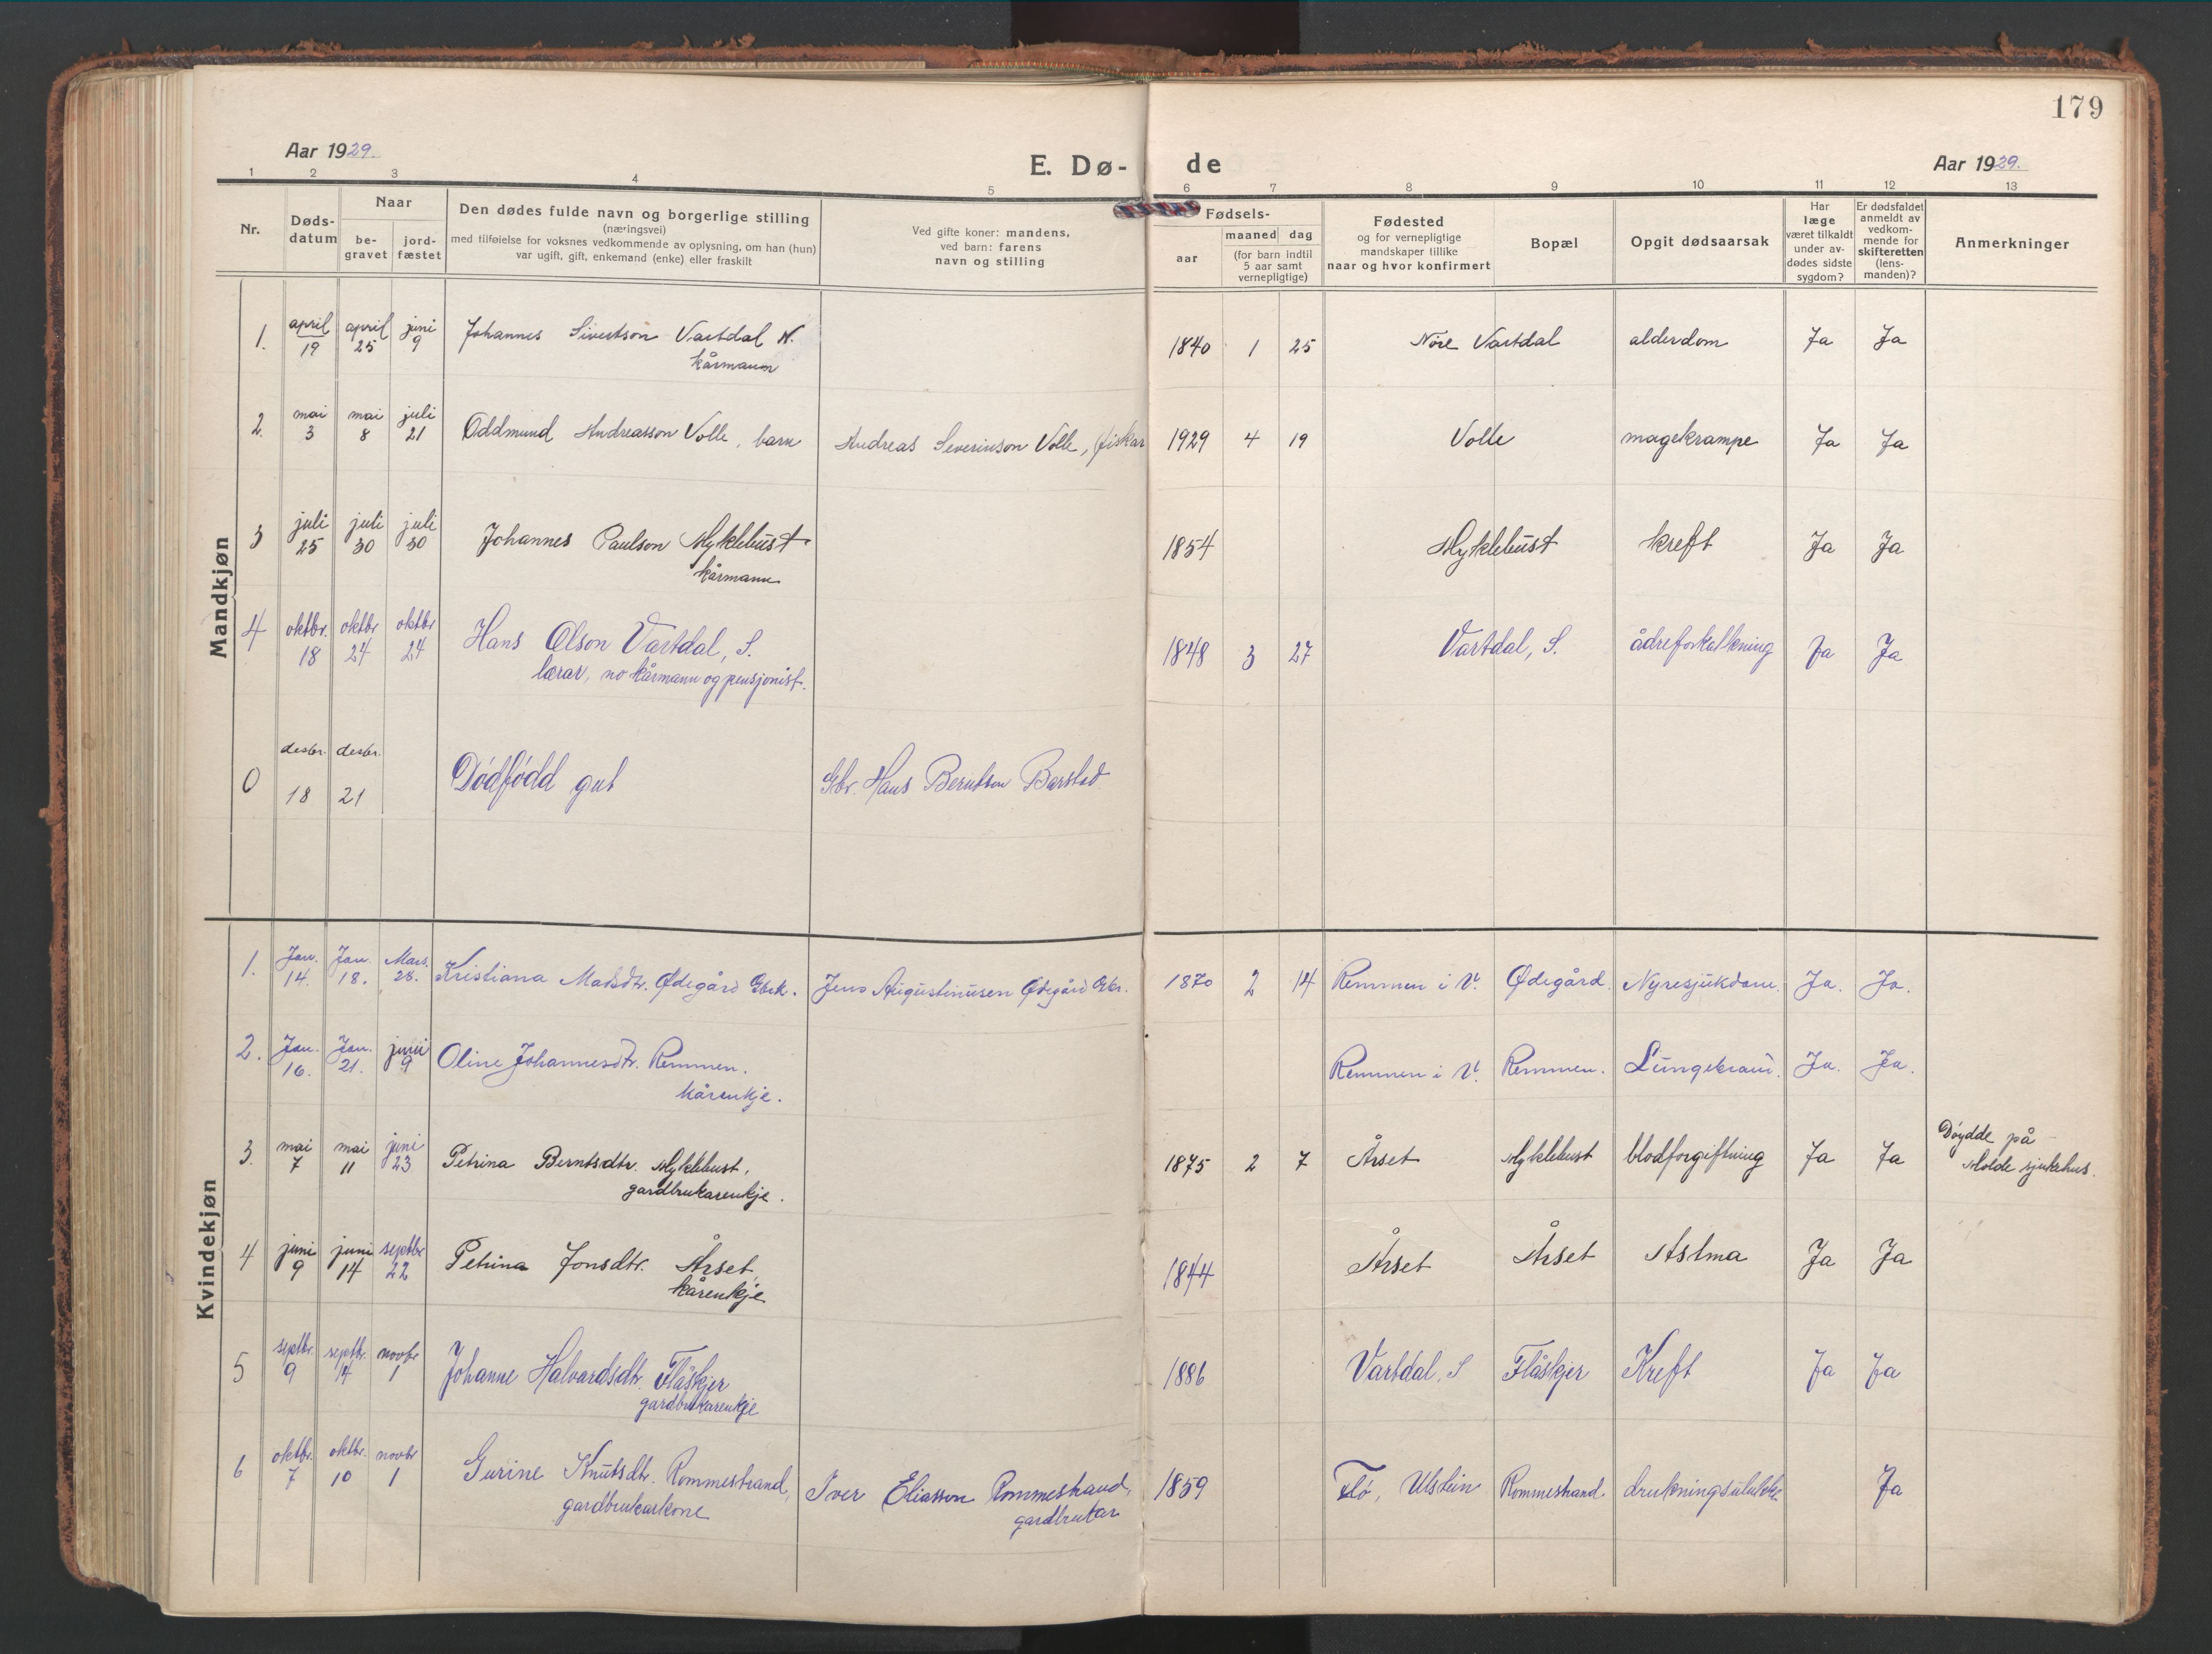 179
Aar 1929.
E. Dø-de
Aar 1929.
1 2 3 4 5 6 7 8 9 10 11 12 13
Nr.
Døds-
datum
Naar
be-
gravet
jord-
fæstet
Den dødes fulde navn og borgerlige stilling
(næringsvei)
med tilføielse for voksnes vedkommende av oplysning, om han (hun)
var ugift, gift, enkemand (enke) eller fraskilt
Ved gifte koner: mandens,
ved barn: farens
navn og stilling
Fødsels-
aar
maaned dag
(for barn indtil
5 aar samt
vernepligtige)
Fødested
og for vernepligtige
mandskaper tillike
naar og hvor konfirmert
Bopæl
Opgit dødsaarsak
Har
læge
været tilkaldt
under av-
dødes sidste
sygdom?
Er dødsfaldet
anmeldt av
vedkom-
mende for
skifteretten
(lens-
manden)?
Anmerkninger
Mandkjøn
1. april 19 april 25 juni 9 Johannes Sivertson Vartdal N. 1840 1 25 Nore Vartdal alderdom Ja Ja
kårmann
2. mai 3 mai 8 juli 21 Oddmund Andreasson Volle, barn Andreas Severinson Volle, fiskar 1929 4 19 Volle magekrampe Ja Ja
3 juli 25 juli 30 juli 30 Johannes Paulson Myklebust 1854 Myklebust kreft Ja Ja
kårmann
4 oktbr. 18 oktbr 24 oktbr 24 Hans Olson Vartdal, S. 1848 3 27 Vartdal, S. ådreforkalkning Ja Ja
lærar, no kårmann og pensjonist.
0 desbr. 18 desbr. 21 Dødfødd gut Gbr. Hans Berntson Barstad
Kvindekjøn
1. Jan. 14. Jan. 18. Mars. 28. Kristiana Madsdtr. Ødegård Gbrk. Jens Augustinusen Ødegård Gbr. 1870 2 14 Remmen i V. Ødegård. Nyresjukdom. Ja. Ja.
2. Jan. 16. Jan. 21. juni 9 Oline Johannesdtr. Remmen. Remmen i V. Remmen. Ja. Ja.
kårenkje.
3. mai 7 mai 11 juni 23 Petrina Berntsdtr. Myklebust, 1875 2 7 Årset Myklebust blodforgiftning Ja Ja Døydde på
Molde sjukehus.
gardbrukarenkje.
4 juni 9 juni 14 septbr 22 Petrina Jonsdtr. Årset, 1844 Årset Årset Astma Ja Ja
kårenkje
5 septbr. 9 septbr. 14 novbr 1 Johanne Halvardsdtr. Flåskjer 1886 Vartdal, S Flåskjer Kreft Ja Ja
gardbrukarenkje
6 oktbr. 7 oktbr. 10 novbr 1 Gurine Knutsdtr. Rommestrand, Iver Eliasson Rommestrand, 1859 Flø, Ulstein Rommestrand drukningsulukke Ja
gardbrukarkone gardbrukar